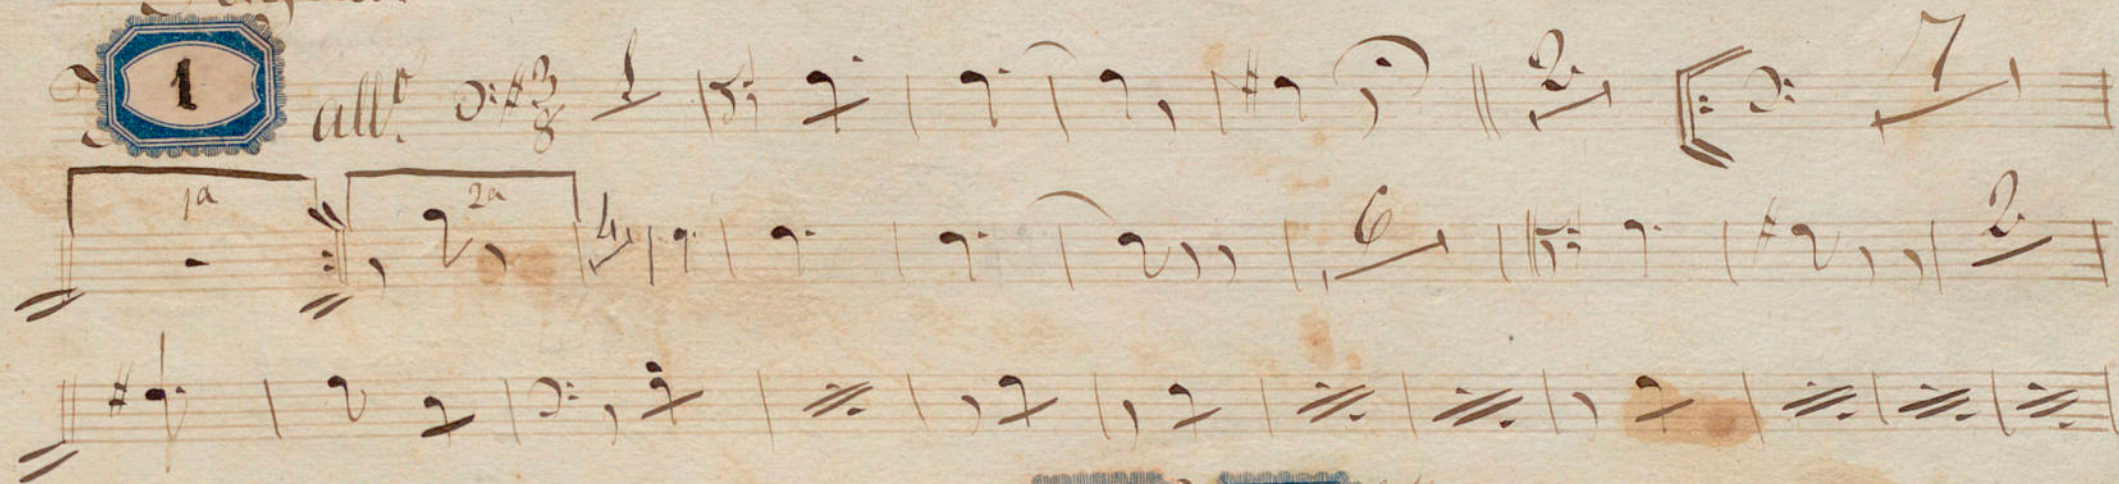 1 allº 3/8 1 2 7
1a 2a 4 6 2